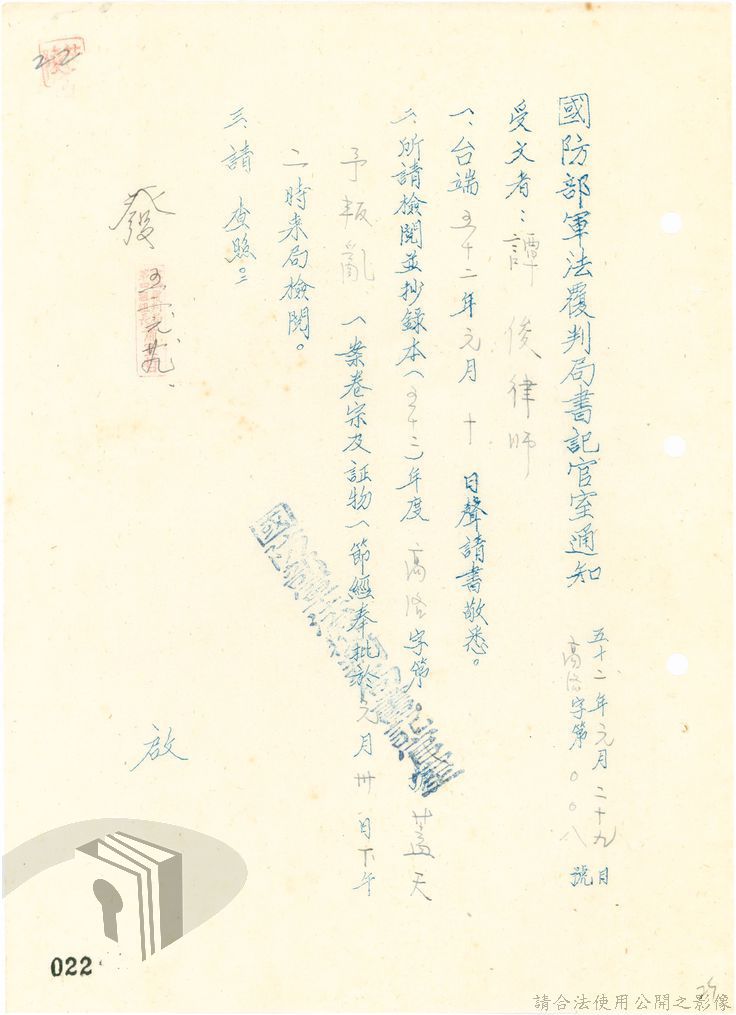 國防部軍法覆判局書記官室通知
五十二年元月二十九日
高洛字第〇〇八號
受文者：譚俊律師
一、台端五十二年元月十日聲請書敬悉。
二、所請檢閱並抄錄本(五十二)年度高洛字第 號蓋天
予叛亂一案卷宗及証物一節經奉批於元月卅日下午
二時來局檢閱。
三、請查照。
發
啟
22
022
請合法使用公開之影像